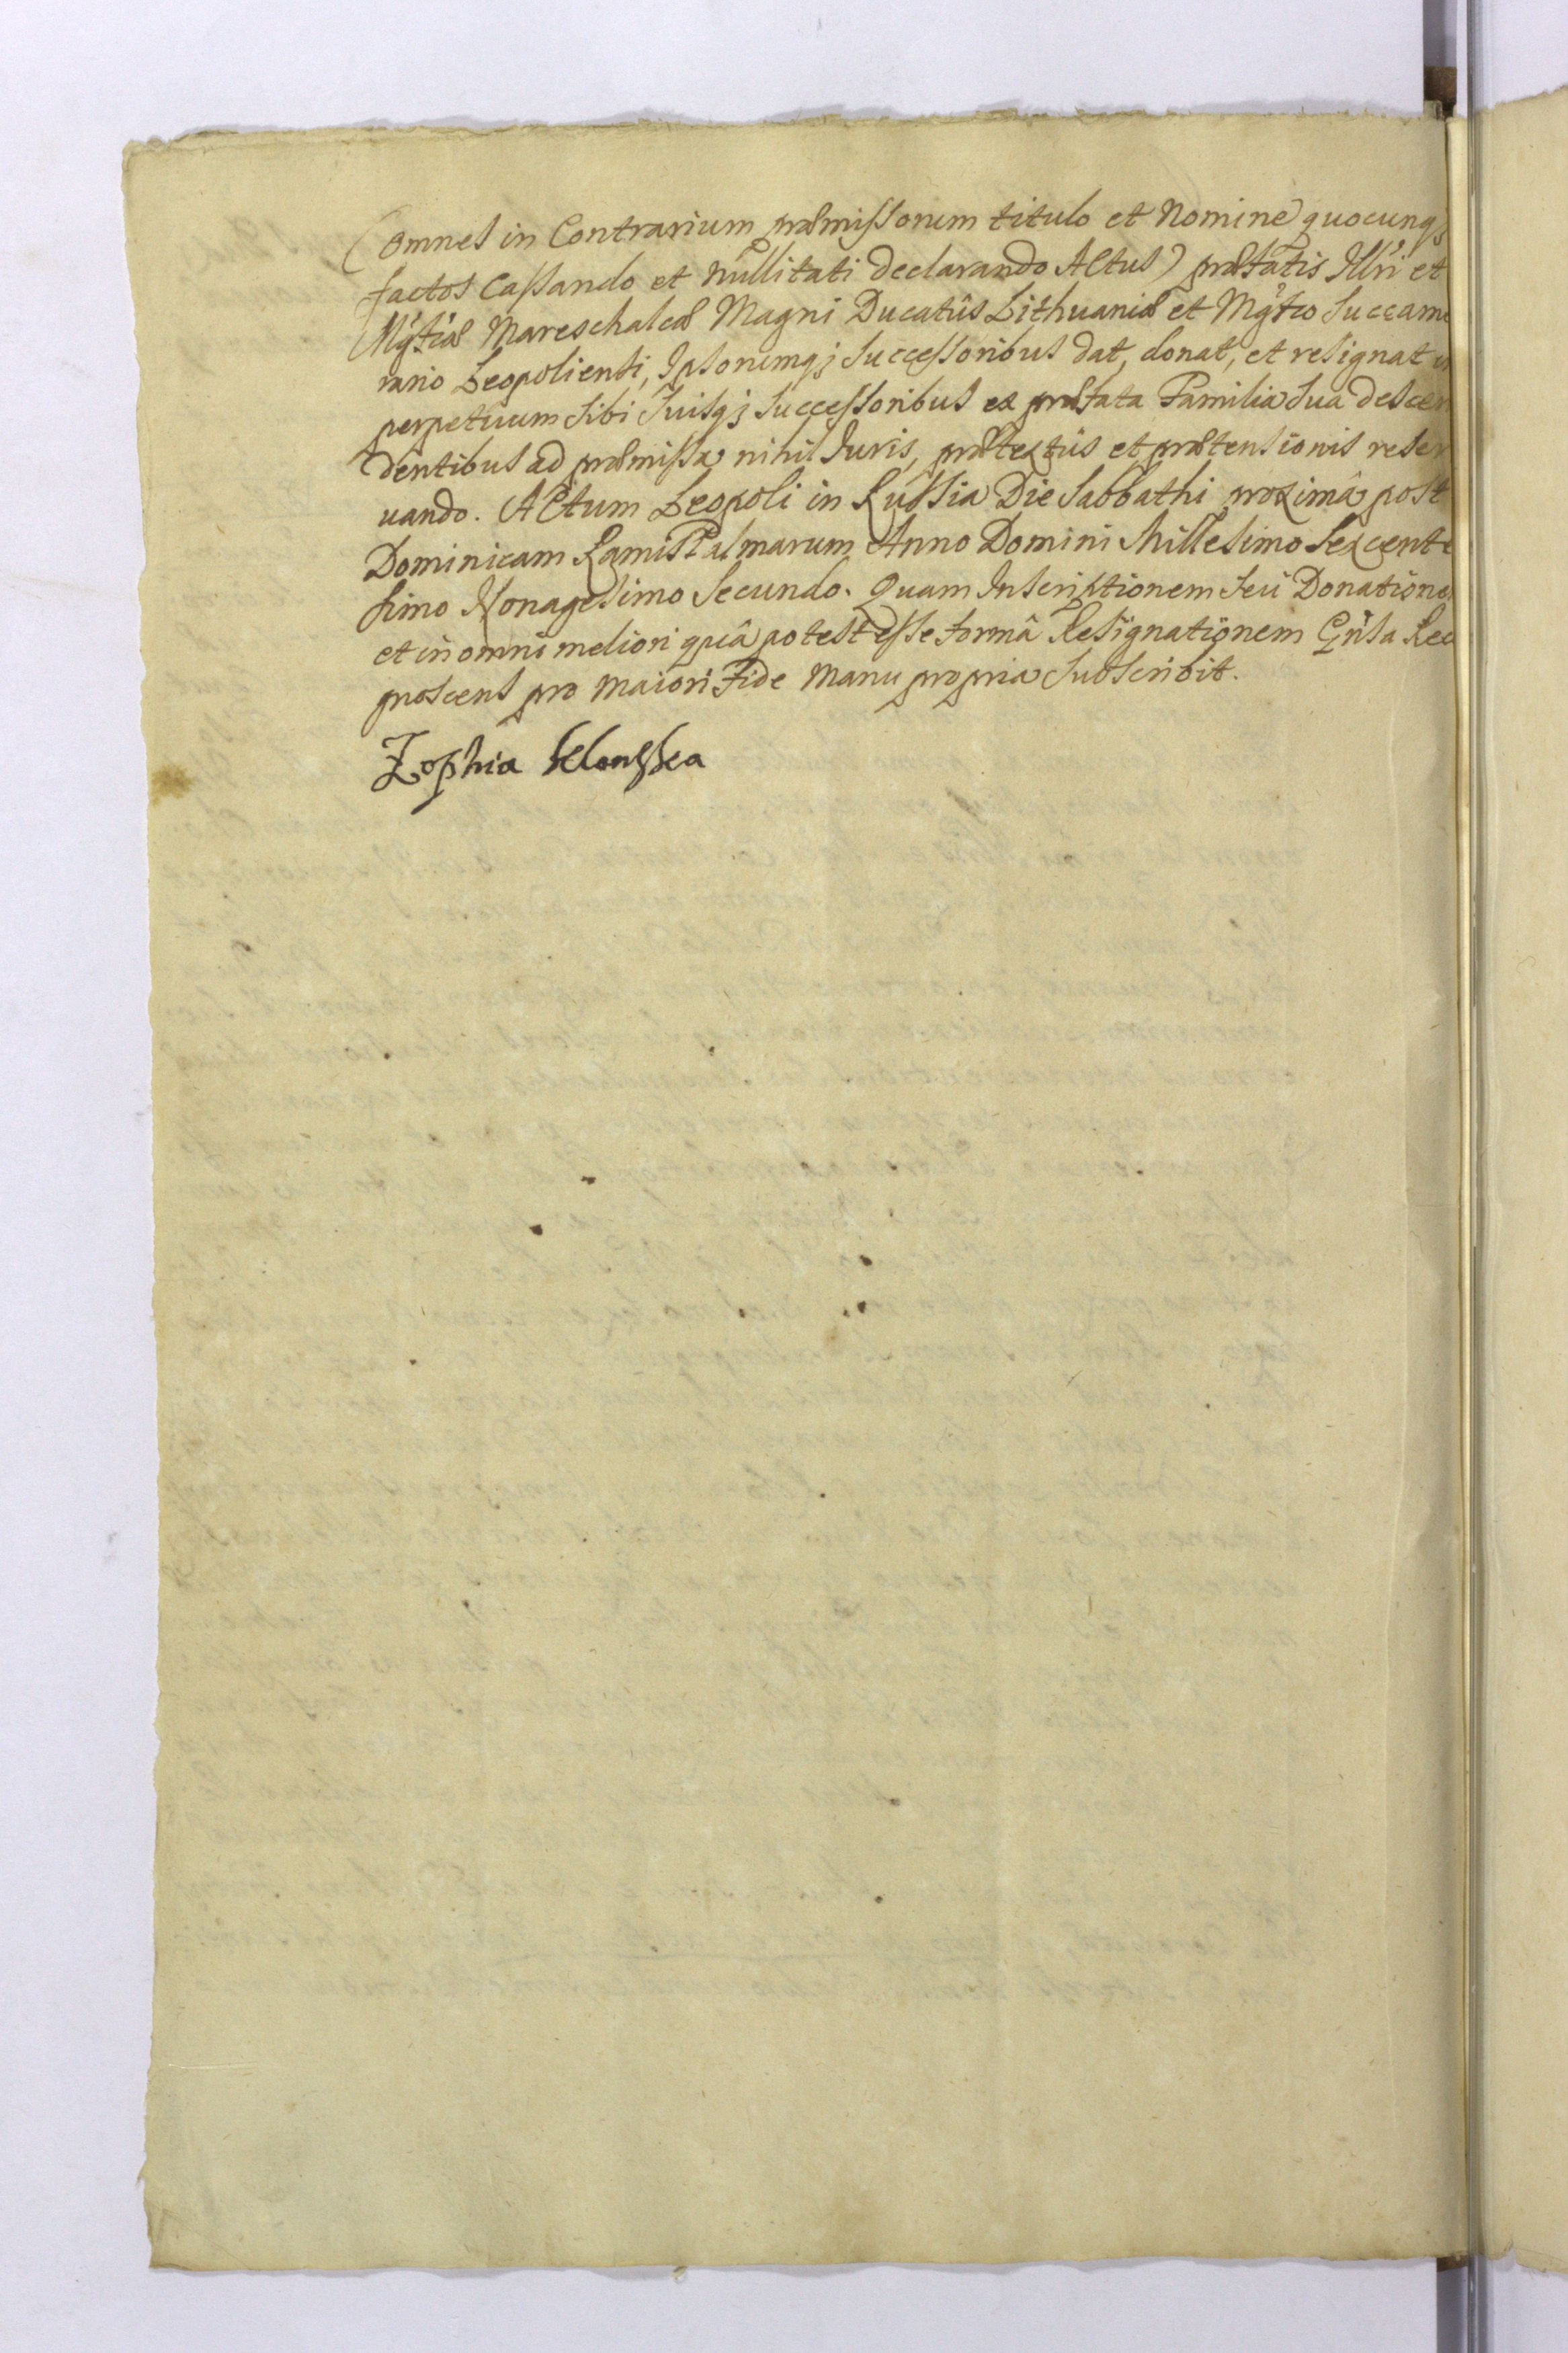 (omnes in Contrarium præmissorum titulo et Nomine quocunq;
factos Cassando et Nullitati declarando Actus) præfatis Illri et
Mgtcæ Mareschalcæ Magni Ducatûs Lithuaniæ et Mgtco Succame
rario Leopoliensi, Ipsorumq; Successoribus dat, donat, et resignat in
perpetuum Sibi Suisq; Successoribus ex præfata Familia Sua descen
dentibus ad præmissa nihil Iuris, prætextûs et prætensionis reser
uando. Actum Leopoli in Russia Die Sabbathi proximâ post
Dominicam Ramis Palmarum Anno Domini Millesimo Sexcente
simo Nonagesimo Secundo. Quam Inscriptionem Seu Donatione
et in omni meliori quâ potest esse formâ Resignationem Gnsa Rec
gnoscens pro maiori Fide Manu propria Subscribit.
Zophia